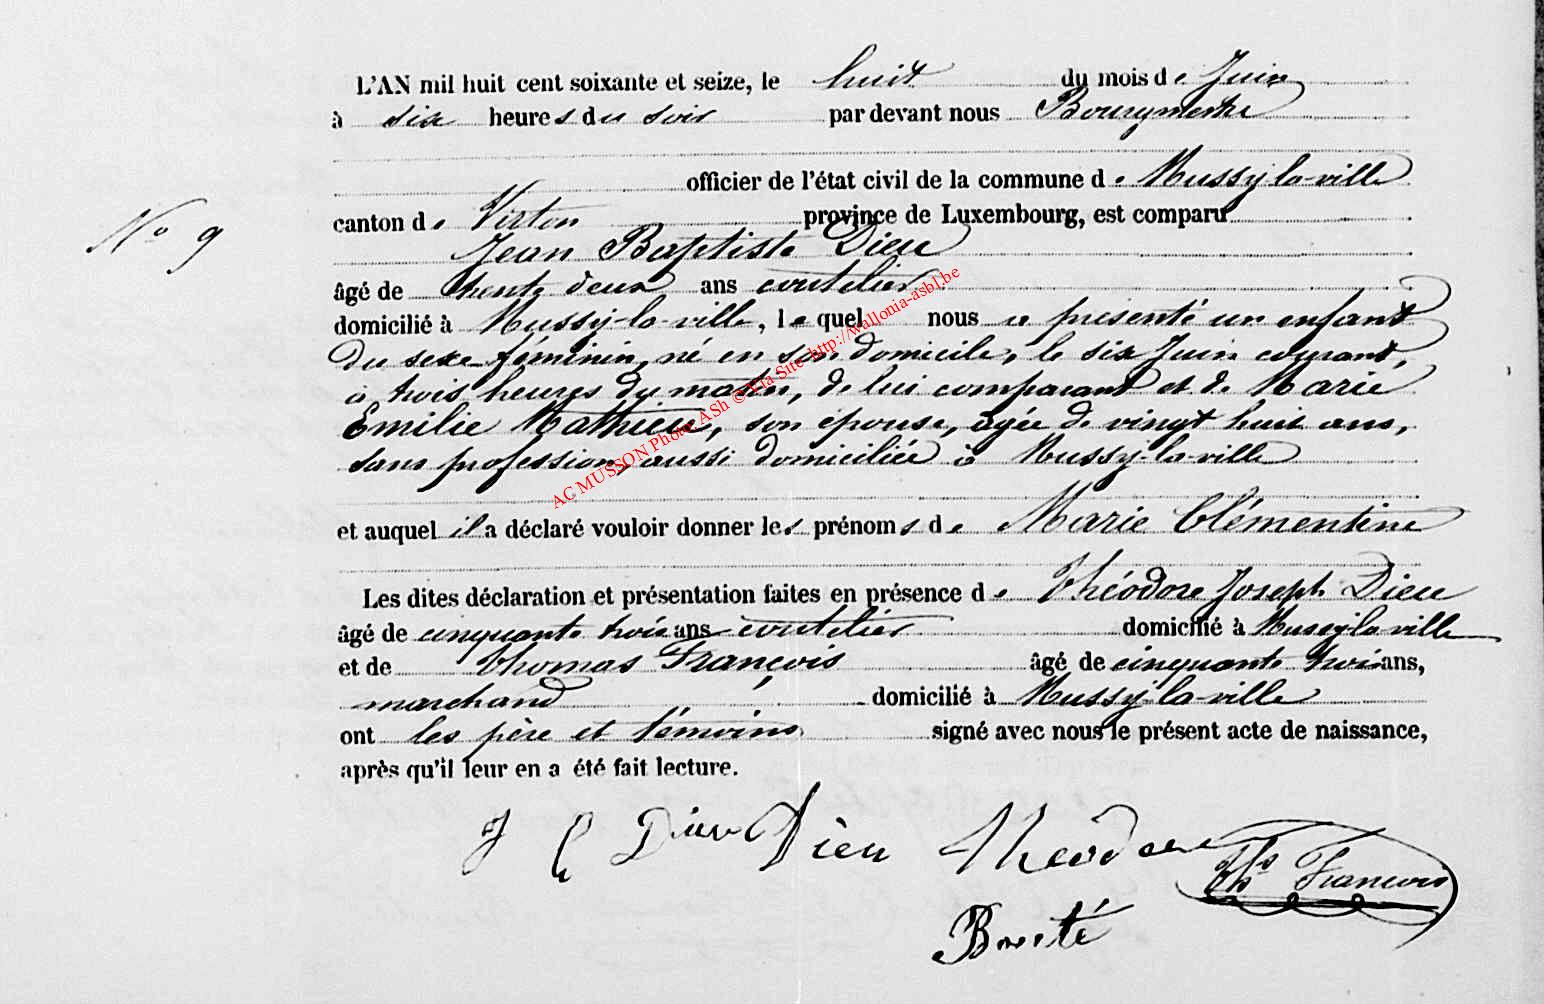 L'AN mil huit cent soixante et seize, le huit du mois de Juin
à six heures du soir par devant nous Bourgmestre
officier de l'état civil de la commune de Mussy-la-ville
N° 9
canton de Virton province de Luxembourg, est comparu
Jean Baptiste Dieu
âgé de trente deux ans coutelier
domicilié à Mussy-la-ville, lequel nous a présenté un enfant
du sexe féminin, né en son domicile, le six Juin courant,
à trois heures du matin, de lui comparant et de Marie
Emilie Mathieu, son épouse, agée de vingt huit ans,
sans profession, aussi domiciliée à Mussy-la-ville
et auquel il a déclaré vouloir donner les prénoms de Marie Clémentine
Les dites déclaration et présentation faites en présence de Théodore Joseph Dieu
âgé de cinquante trois ans coutelier domicilié à Mussy-la-ville
et de Thomas François âgé de cinquante trois ans,
marchand domicilié à Mussy-la-ville
ont les père et témoins signé avec nous le présent acte de naissance,
après qu'il leur en a été fait lecture.
J B Dieu Dieu Théodore Ths François
AC MUSSON Photo ASh © Via Site http://wallonia-asbl.be